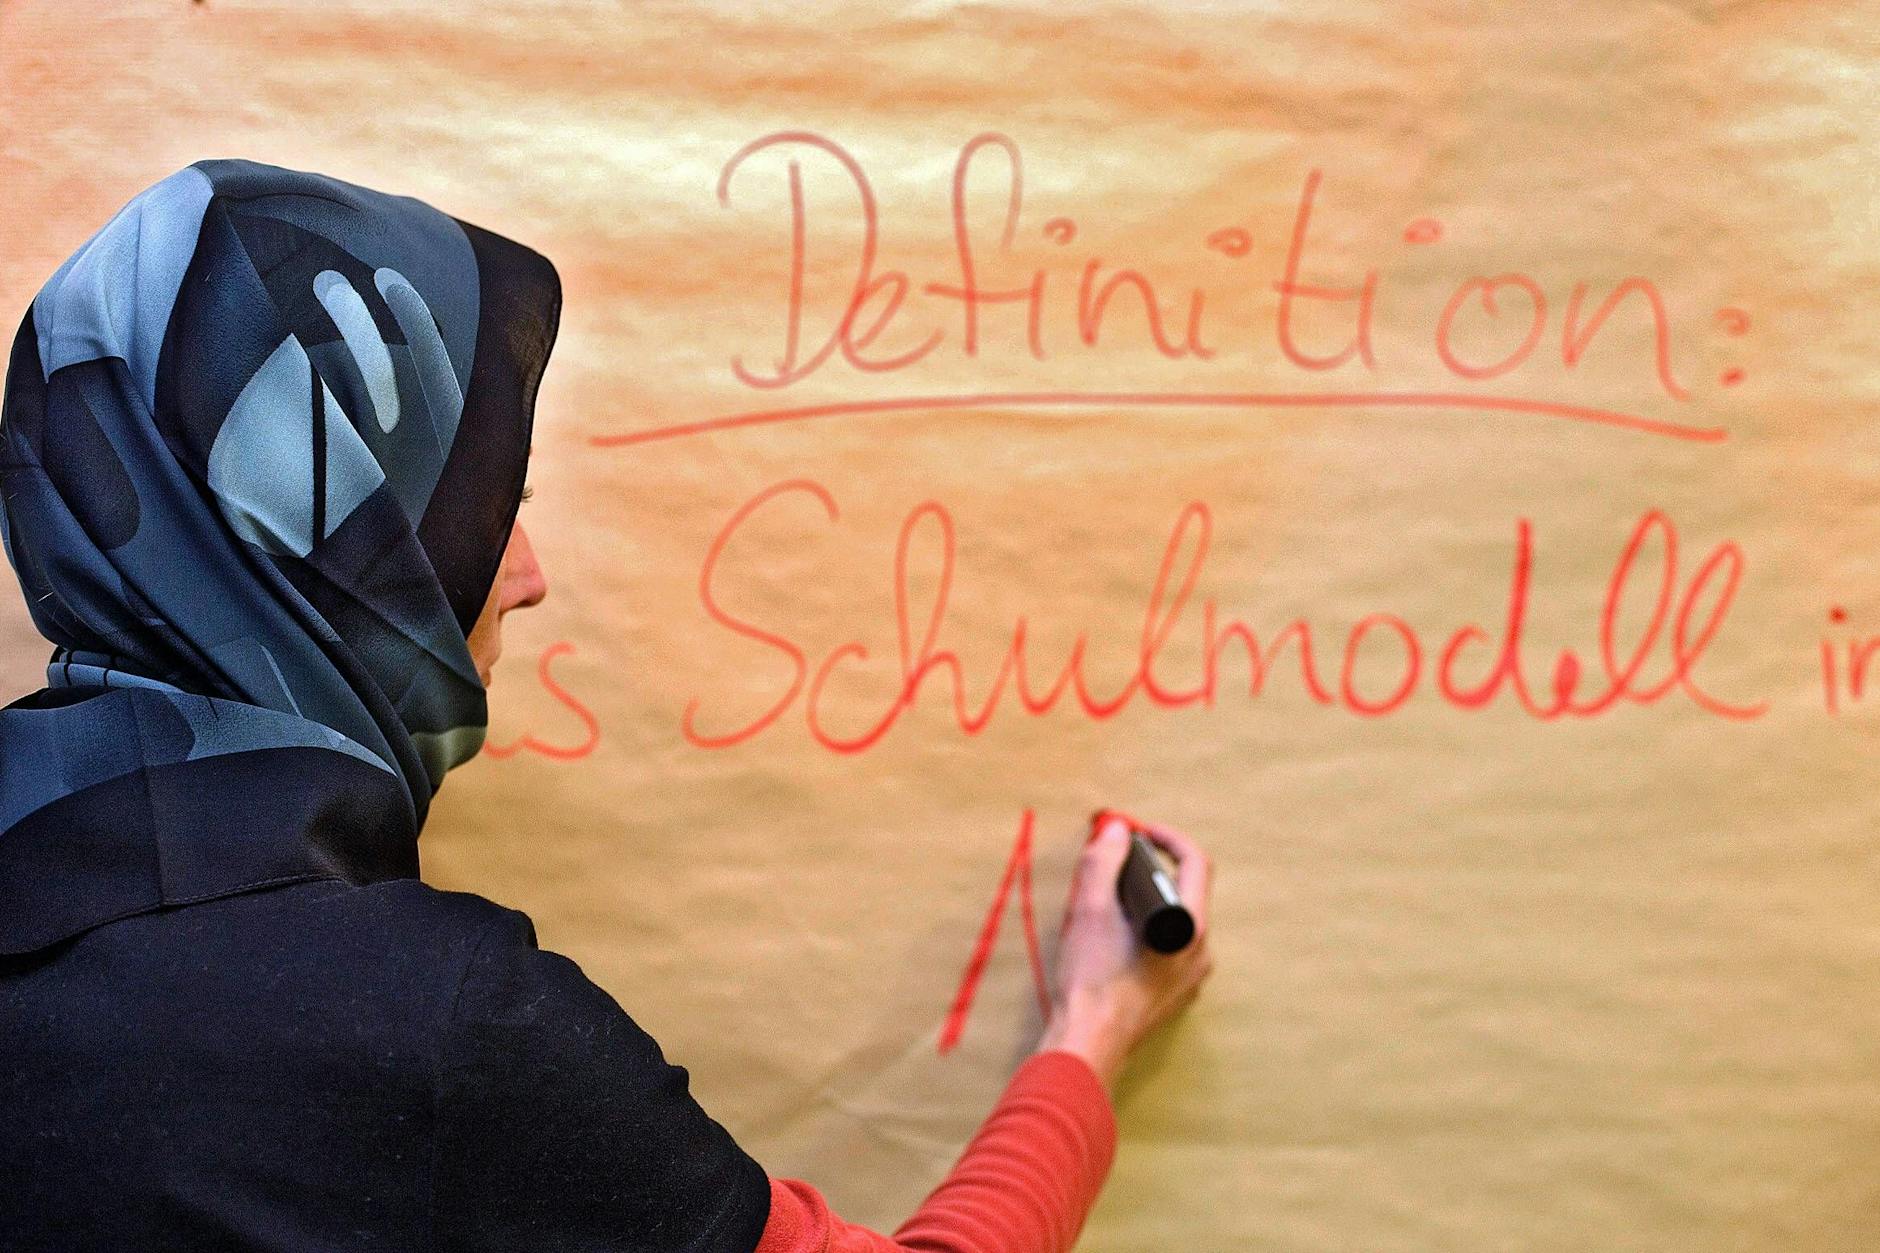 Definition:
Schulmodell